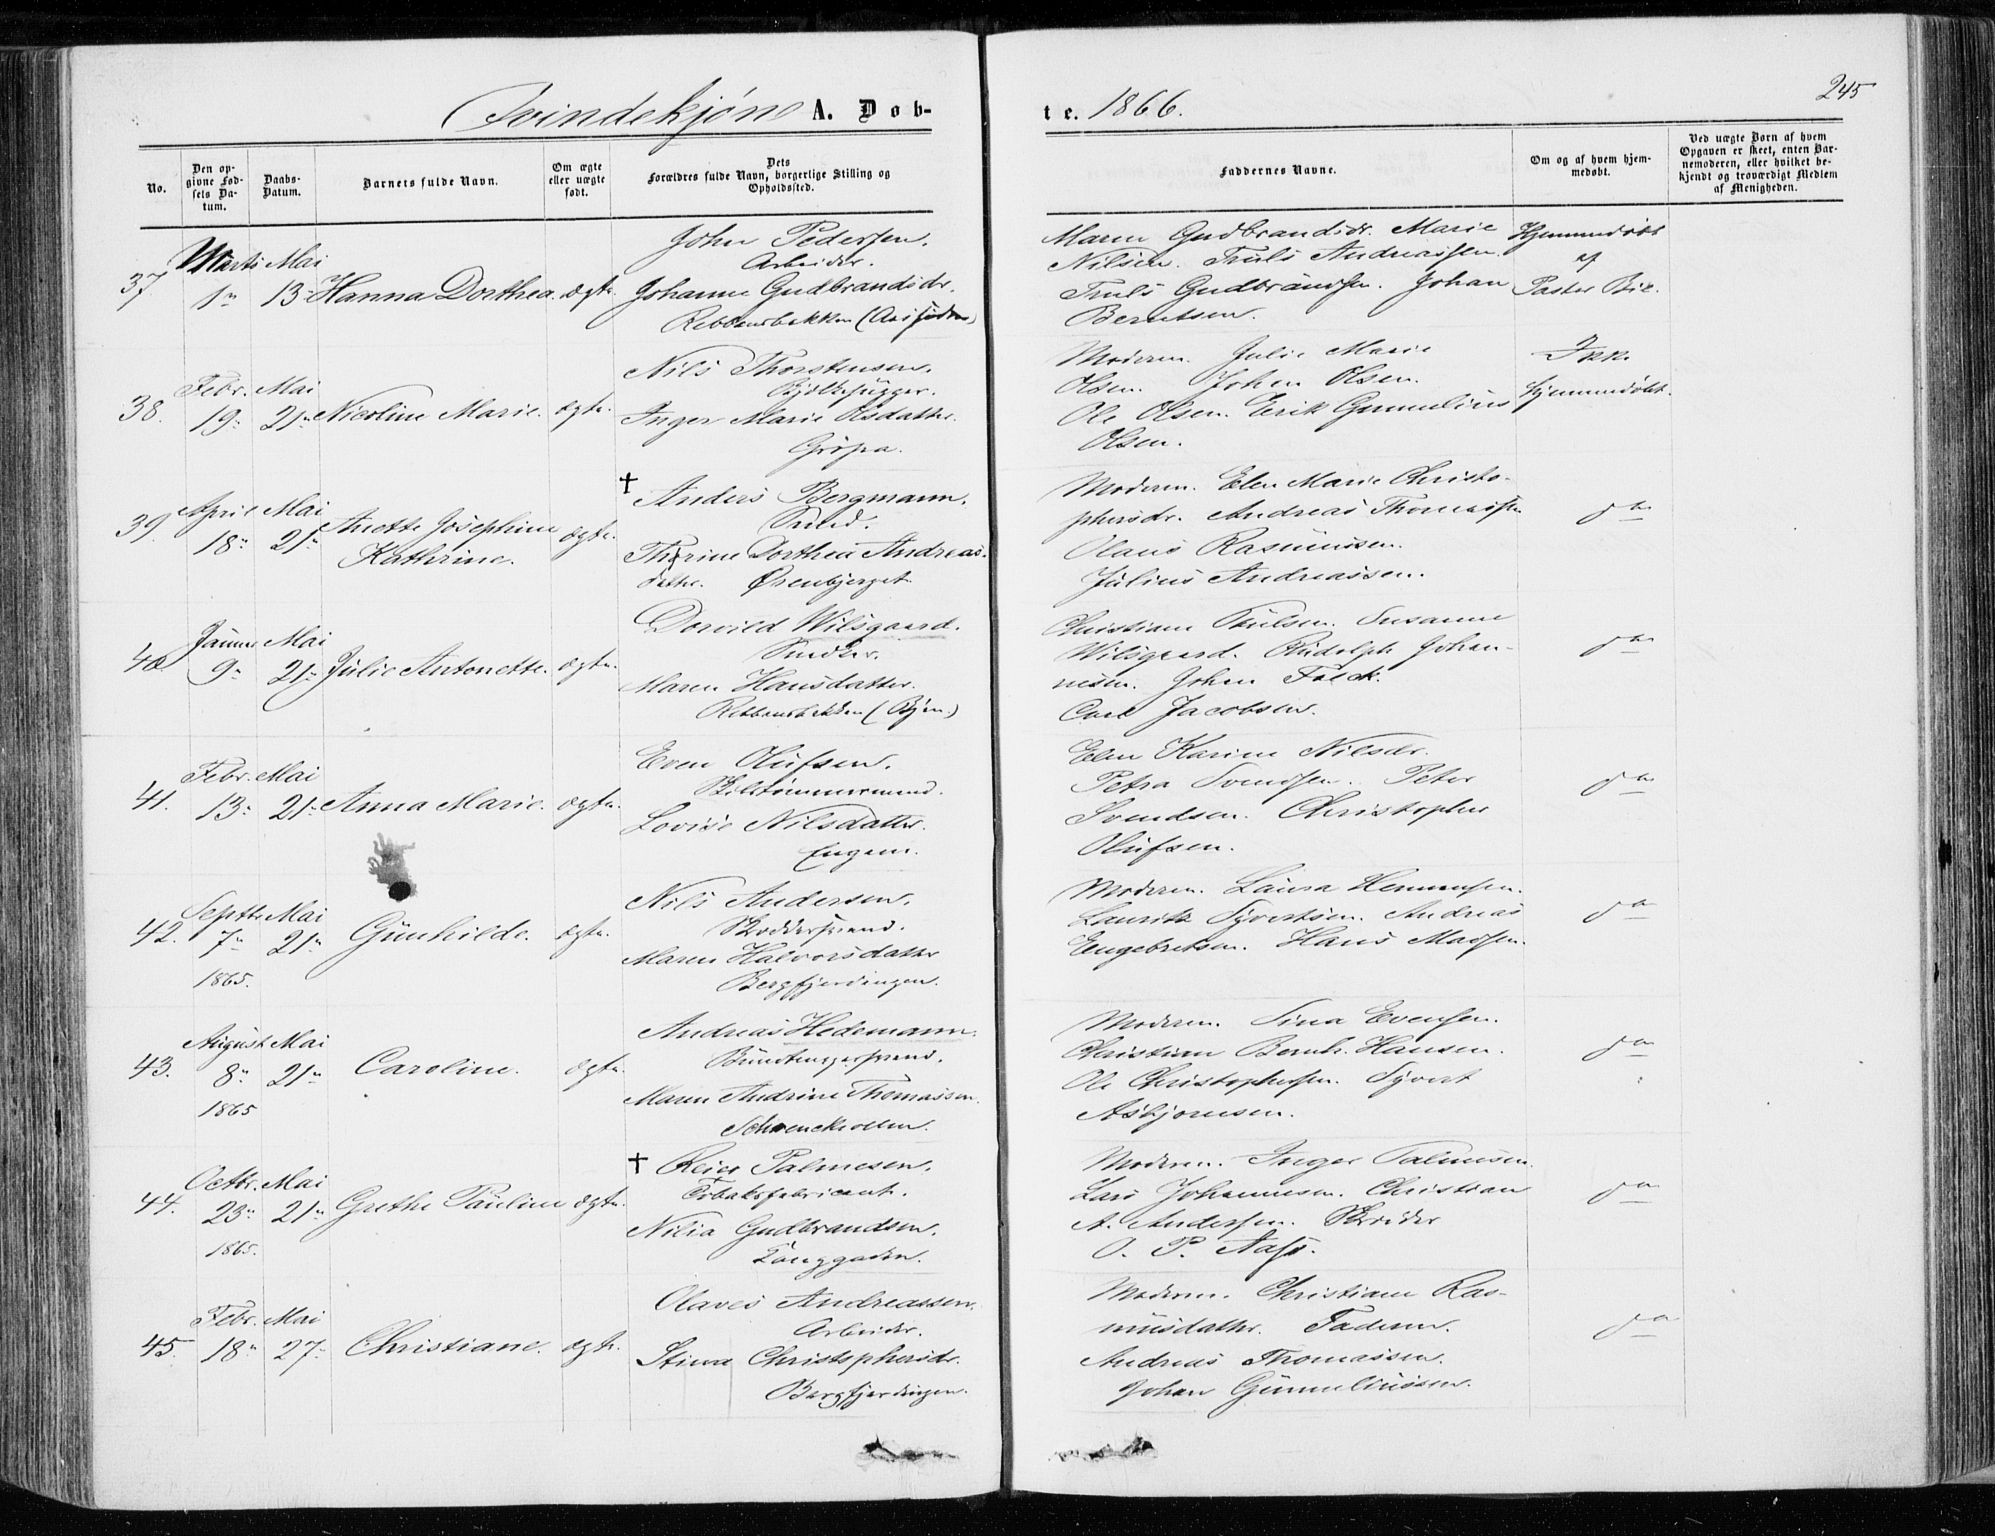 245
Qvindekjøn A. Døb-
te. 1866.
No.
Den opgivne Fødsels Datum.
Daabs-Datum.
Barnets fulde Navn.
Om ægte eller uægte født.
Dets Forældres fulde Navn, borgerlige Stilling og Opholdssted.
Faddernes Navne.
Om og af hvem hjemmedøbt.
Ved uægte Børn af hvem Opgaven er skeet, enten Barnemoderen, eller hvilket bekjendt og troværdigt Medlem af Menigheden.
37 Marts 1 Mai 13 Hanna Dorthea. ægte.
John Pedersen.
Arbeider.
Johanne Gudbrandsdr.
Rebbensbakken
Maren Gudbrandsdr. Marie
Nilsen. Truls Andreassen.
Truls Gudbrandsen. Johan
Berntsen.
Hjemmedøbt
af
Pastor
38. Febr. 19 Mai 21 Nicoline Marie. ægte.
Nils Thorstensen.
Inger Marie Olsdatter.
Moderen. Julie Marie
Olsen. Johan Olsen.
Ole Olsen. Erik Gunnulius
Olsen.
Ikke
hjemmedøbt.
39. April 18 Mai 21 Anette Josephine
Kathrine. ægte.
† Anders Bergmann.
Smed.
Thrine Dorthea Andreas-
datter. Ørenbjerget.
Moderen. Elen Marie Christo-
phersdr. Andreas Thomassen
Olaus Rasmussen.
Julius Andreassen.
do
40. Januar 9 Mai 21 Julie Antonette. ægte.
Dorvild Wilsgaard.
Snedker.
Maren Hansdatter.
Rebbensbakken (Byen.)
Christiane Paulsen. Susanne
Wilsgaard. Rudolph Johan-
nesen. Johan Falck.
Carl Jacobsen.
do
41. Febr. 13 Mai 21 Anna Marie. ægte.
Even Olufsen.
Skibstømmermand.
Lovise Nilsdatter.
Engene.
Elen Karine Nilsdr.
Petra Svendsen. Peter
Svendsen. Christopher
Olufsen.
do
42. Septbr. 7 1865. Mai 21 Gunhilde. ægte.
Nils Andersen.
Skreddersvend.
Maren Halvorsdatter
Bergfjerdingen.
Moderen. Laura Hemmingsen.
Lauritz Syvertsen. Andreas
Engebretsen. Hans Madsen.
do
43. August 8 1865 Mai 21 Caroline. ægte.
Andreas Hedemann.
Bundtmagersvend.
Maren Andrine Thomassen.
Schwenckollen.
Moderen. Sina Evensen.
Christian Bernh. Hansen.
Ole Christophersen. Syvert
Asbjørnsen.
do
44. Octbr. 23 1865. Mai 21 Grethe Pauline ægte.
† Reier Palmesen.
Tobaksfabricant.
Nilia Gudbrandsen.
Langgaden.
Moderen. Inger Palmesen.
Lars Johannesen. Christian
A. Andersen. Skræder
O. P. Aass.
do
45. Febr. 18 Mai 27 Christiane. ægte.
Olaves Andreassen.
Arbeider.
Stina Christophersdr.
Bergfjerdingen.
Moderen. Christiane Ras-
musdatter. Faderen.
Andreas Thomassen.
Johan Gunnulsen.
do